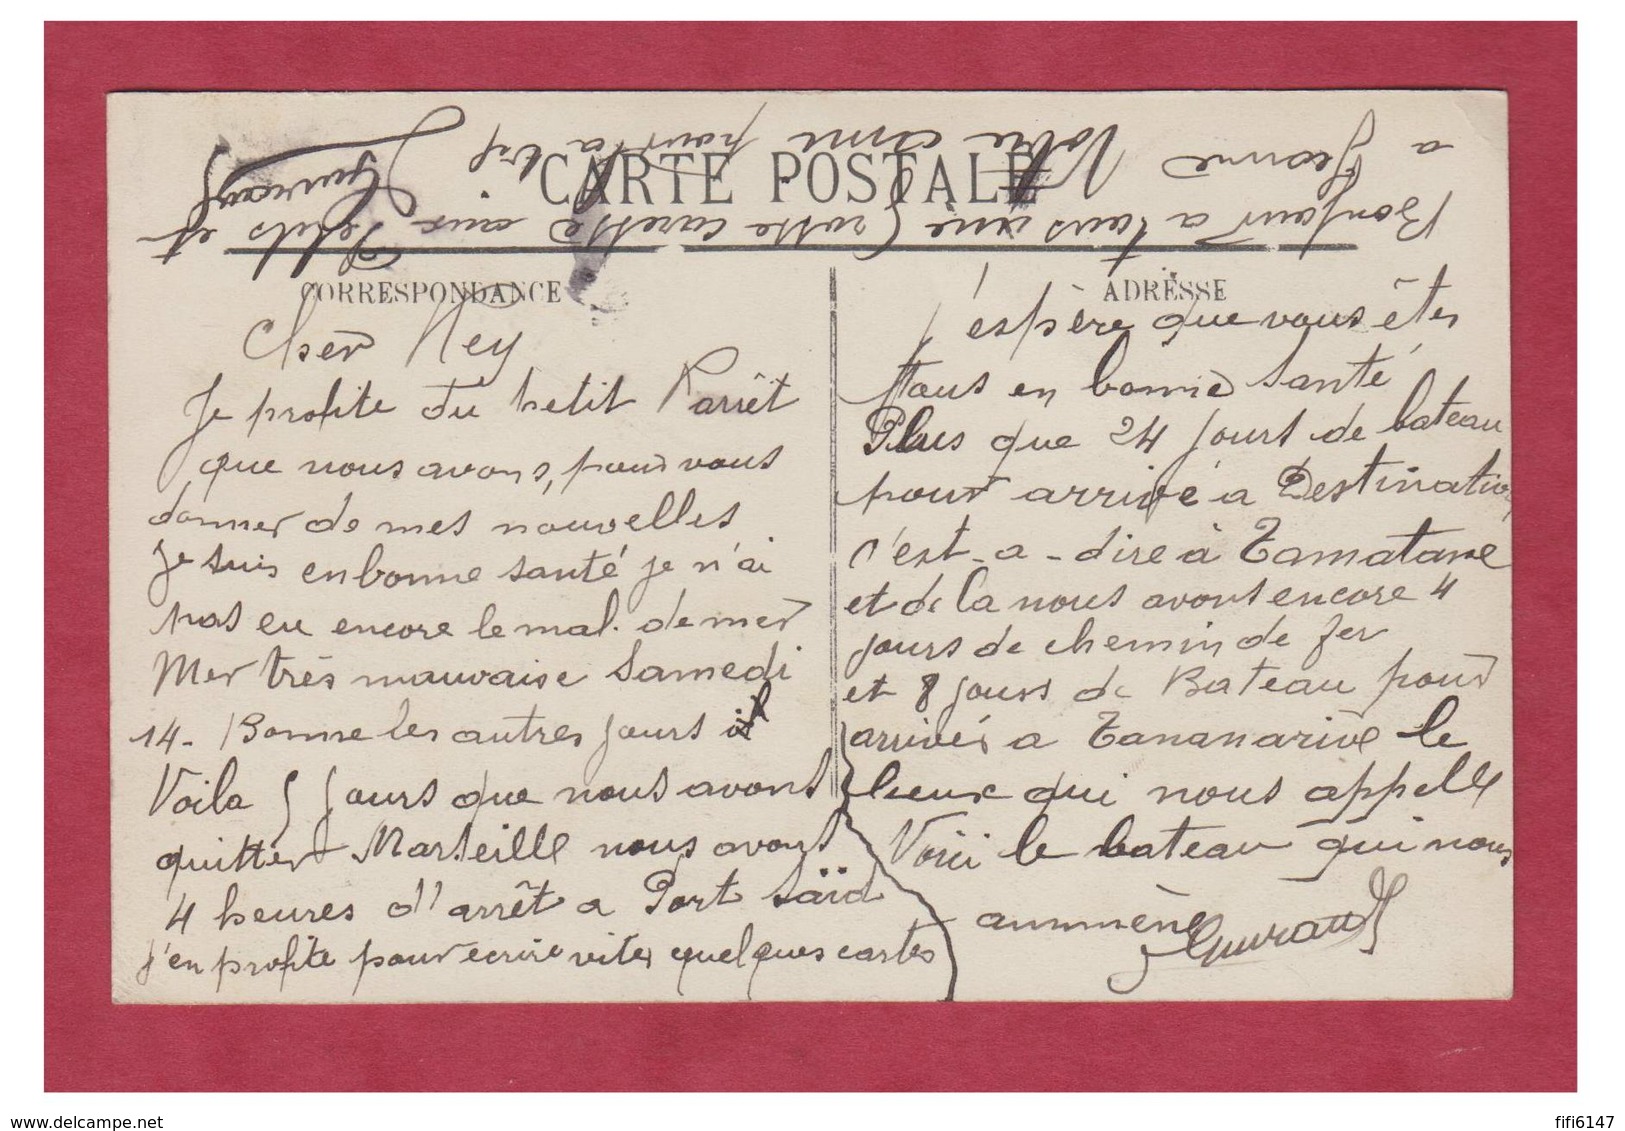 CARTE POSTALE
CORRESPONDANCE
Cher Ney
Je profite du petit arrêt
que nous avons, pour vous
donner de mes nouvelles
Je suis en bonne santé je n'ai
pas eu encore le mal de mer
Mer très mauvaise Samedi
14. Bonne les autres jours
Voila 5 jours que nous avons
quitter Marseille nous avons
4 heures d'arrêt a Port Saïd
j'en profite pour ecrire vites quelques cartes
ADRESSE
j'espère que vous êtes
tous en bonne santé
Plus que 24 jours de bateau
pour arrivé a Destination
c'est-a-dire à Tamatave
et de la nous avons encore 4
jours de chemin de fer
et 8 jours de Bateau pour
arrivés a Tananarive le
lieux qui nous appelle
Voici le bateau qui nous
ammène
Guiraud
Bonjour a tous une grosse caresse aux Petits et
a Jeanne Votre ami pour la vie
Guiraud
www.delcampe.net
fifi6147